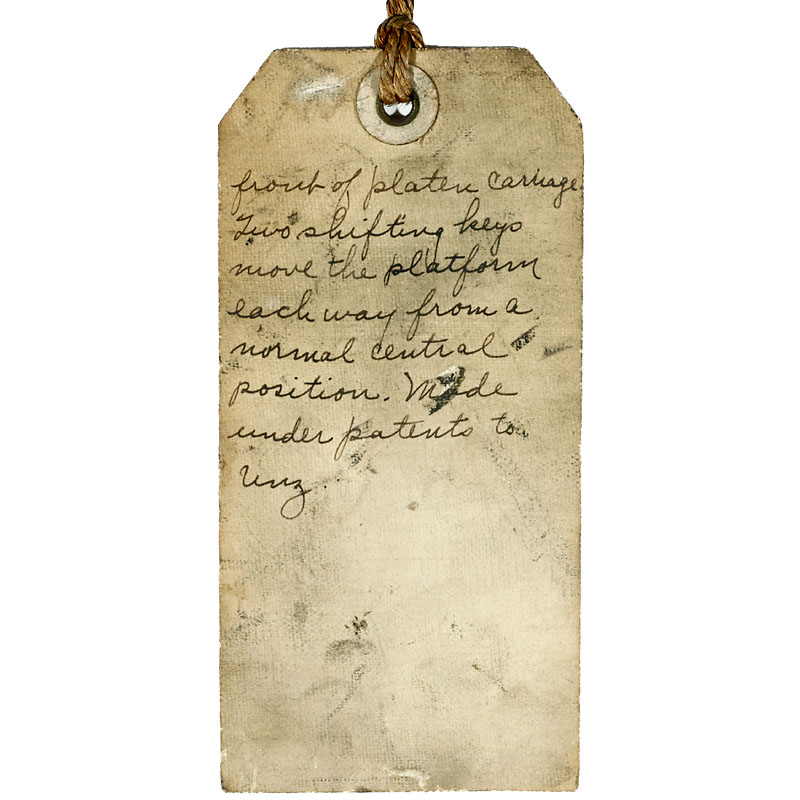 front of platen carriage.
Two shifting keys
move the platform
each way from a
normal central
position. Made
under patents to
Unz.